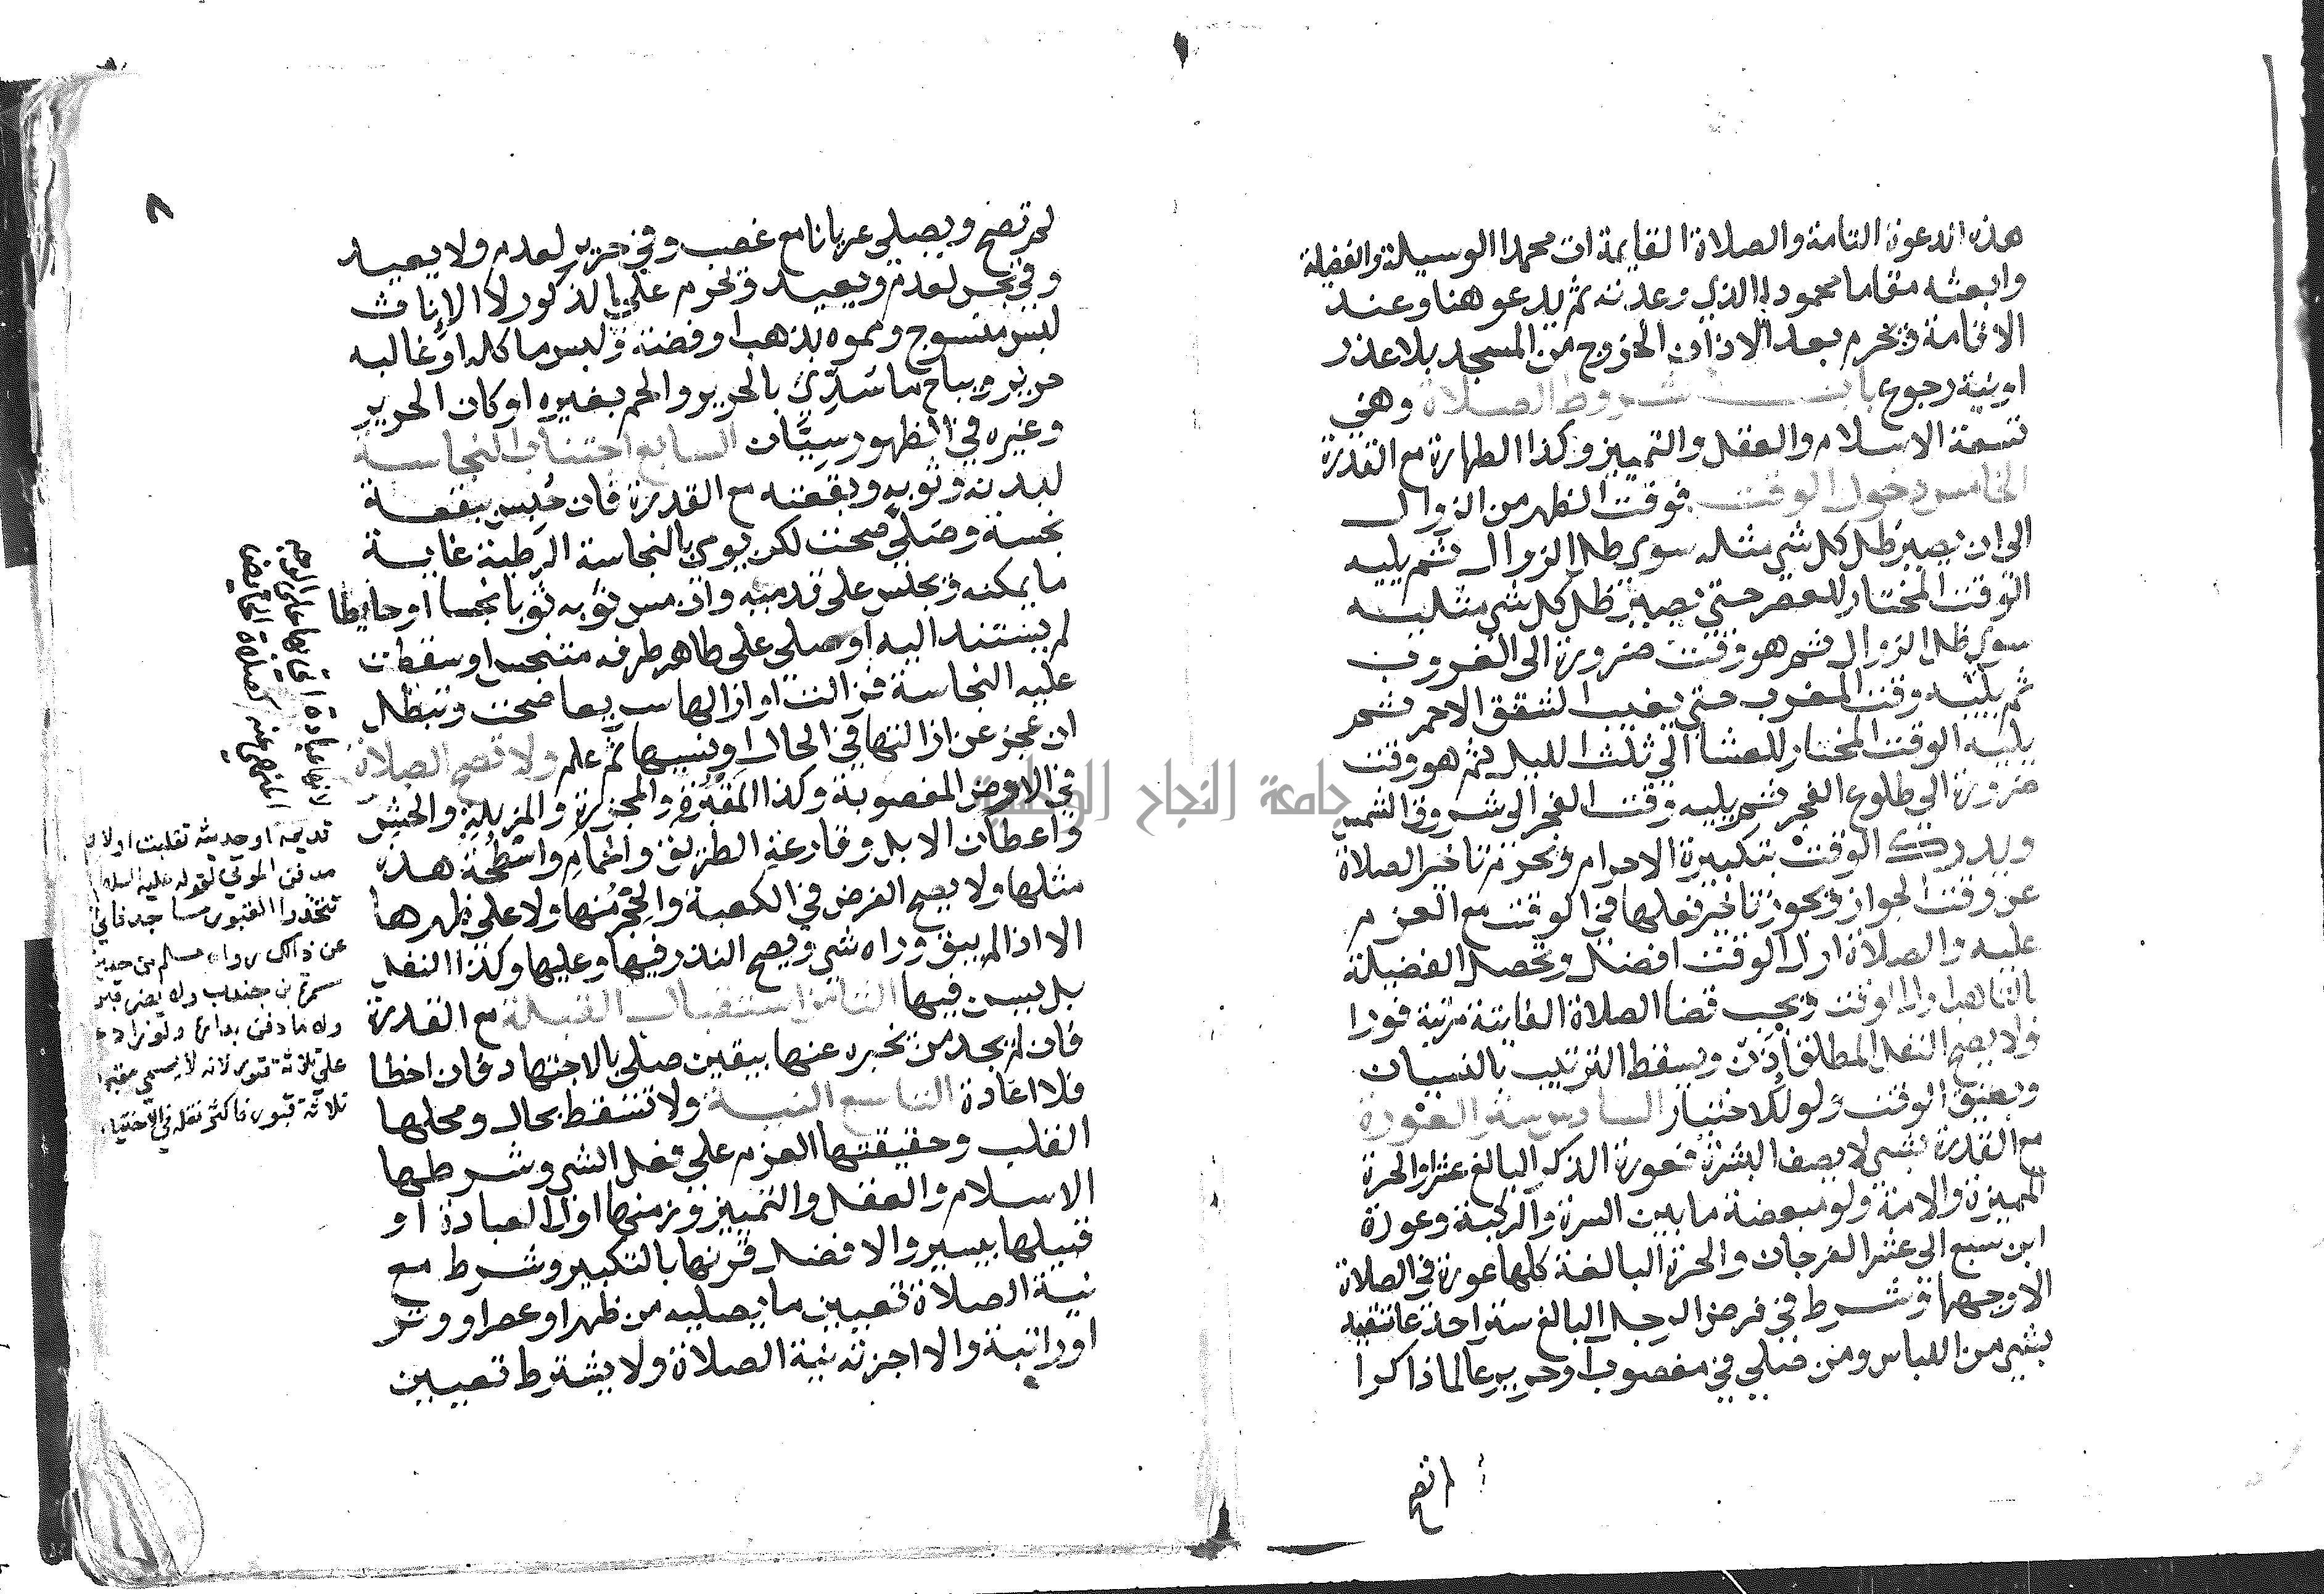 هذه الدعوة التامة والصلاة القايمة ات محمدا الوسيلة والفضيلة
وابعثه مقاما محمودا الذي وعدته ثم يدعو هنا وعند
الاقامة ويحرم بعد الاذان الخروج من المسجد بلا عذر
او نية رجوع باب شروط الصلاة وهي
تسعة الاسلام والعقل والتمييز وكذا الطهارة مع القدرة
الخامس دخول الوقت فوقت الظهر من الزوال
الى ان يصير ظل كل شي مثله سوى ظل الزوال ثم يليه
الوقت المختار للعصر حتى يصير ظل كل شي مثليه
سوى ظل الزوال ثم هو وقت ضرورة الى الغروب
ثم يليه وقت المغرب حتى يغيب الشفق الاحمر ثم
يليه الوقت المختار للعشا الى ثلث الليل ثم هو وقت
ضرورة الى طلوع الفجر ثم يليه وقت الفجر الى شروق الشمس
ويدرك الوقت بتكبيرة الاحرام ويحرم تاخير الصلاة
عن وقت الجواز ويجوز تاخير فعلها في الوقت مع العزم
عليه والصلاة اول الوقت افضل وتحصل الفضيلة
بالتاهب اول الوقت ويجب قضا الصلاة الفايتة مرتبة فورا
ولا يصح النفل المطلق اذن ويسقط الترتيب بالنسيان
وبضيق الوقت ولو للاختيار السادس ستر العورة
مع القدرة بشي لا يصف البشرة فعورة الذكر البالغ عشرا والحرة
المميزة والامة ولو مبعضة ما بين السرة والركبة وعورة
ابن سبع الى عشر الفرجان والحرة البالغة كلها عورة في الصلاة
الا وجهها وشرط في فرض الرجل البالغ ستر احد عاتقيه
بشي من اللباس ومن صلى في مغصوب او حرير عالما ذاكرا
لم تصح
لم تصح ويصلي عريانا مع غصب وفي حرير لعدم ولا يعيد
وفي نجس لعدم ويعيد ويحرم على الذكور لا الاناث
لبس منسوج ومموه بذهب او فضة ولبس ما كله او غالبه
حرير ويباح ما سدي بالحرير والحم بغيره او كان الحرير
وغيره في الظهور سيان السابع اجتناب النجاسة
لبدنه وثوبه وبقعته مع القدرة فان حبس ببقعة
نجسة وصلى صحت لكن يومي بالنجاسة الرطبة غاية
ما يمكنه ويجلس على قدميه وان مس ثوبه ثوبا نجسا او حايطا
لم يستند اليه او صلى على طاهر طرفه متنجس او سقطت
عليه النجاسة فزالت او ازالها سريعا صحت وتبطل
ان عجز عن ازالتها في الحال او نسيها ثم علم ولا تصح الصلاة
في الارض المغصوبة وكذا المقبرة والمجزرة والمزبلة والحش
واعطان الابل وقارعة الطريق والحمام واسطحة هذه
مثلها ولا يصح الفرض في الكعبة والحجر منها ولا على ظهرها
الا اذا لم يبق وراه شي ويصح النذر فيها وعليها وكذا النفل
بل يسن فيها الثامن استقبال القبلة مع القدرة
فان لم يجد من يخبره عنها بيقين صلى بالاجتهاد فان اخطا
فلا اعادة التاسع النية ولا تسقط بحال ومحلها
القلب وحقيقتها العزم على فعل الشي وشرطها
الاسلام والعقل والتمييز وزمنها اول العبادة او
قبيلها بيسير والافضل قرنها بالتكبير وشرط مع
نية الصلاة تعيين ما يصليه من ظهر او عصر او وتر
او راتبة والا اجزته نية الصلاة ولا يشترط تعيين
قديمة او حديثة تقلبت اولا
مدفن الموتى لقوله عليه السلام
تتخذوا القبور مساجد فاني
عن ذالك رواه مسلم من حديث
سمرة بن جندب ولا يضر قبر
ولا ما دفن بداره ولو زاد
على ثلاثة قبور لانه لا يسمى مقبرة
ثلاثة قبور فاكثر نقله في الاختيارات
جامعة النجاح الوطنية